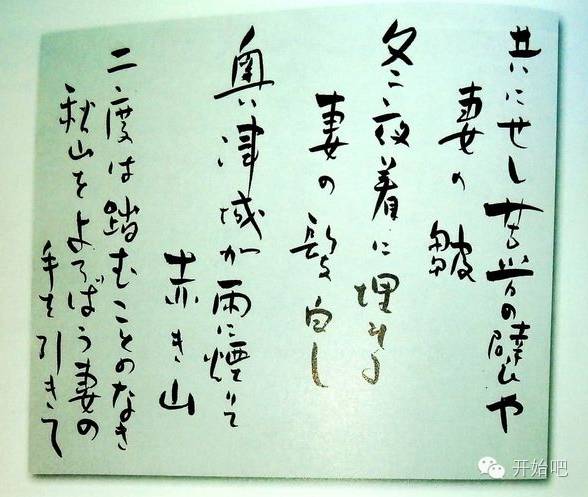 共にせし苦労の襞や
妻の皺
冬夜着に埋もる
妻の髪白し
奥津城が雨に煙りて
赤き山
二度は踏むことのなき
秋山をよろばう妻の
手を引きて
开始吧